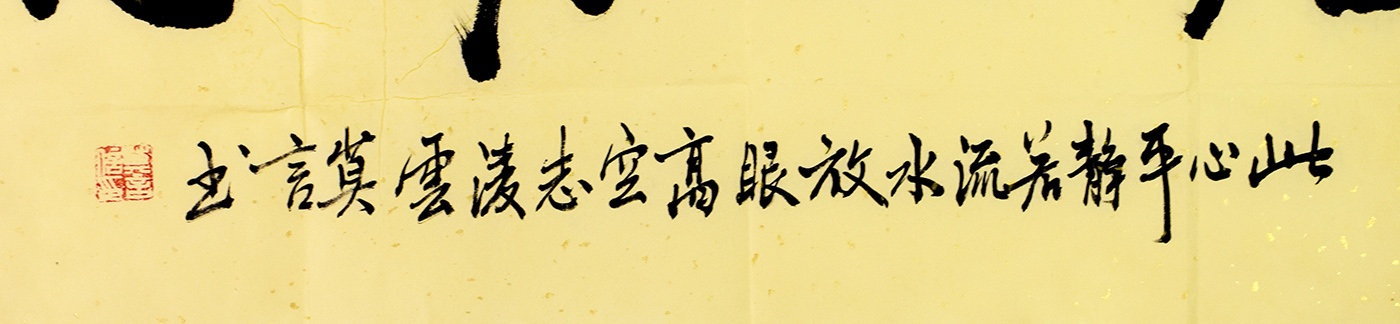 此心平靜若流水放眼高空志凌雲莫言书